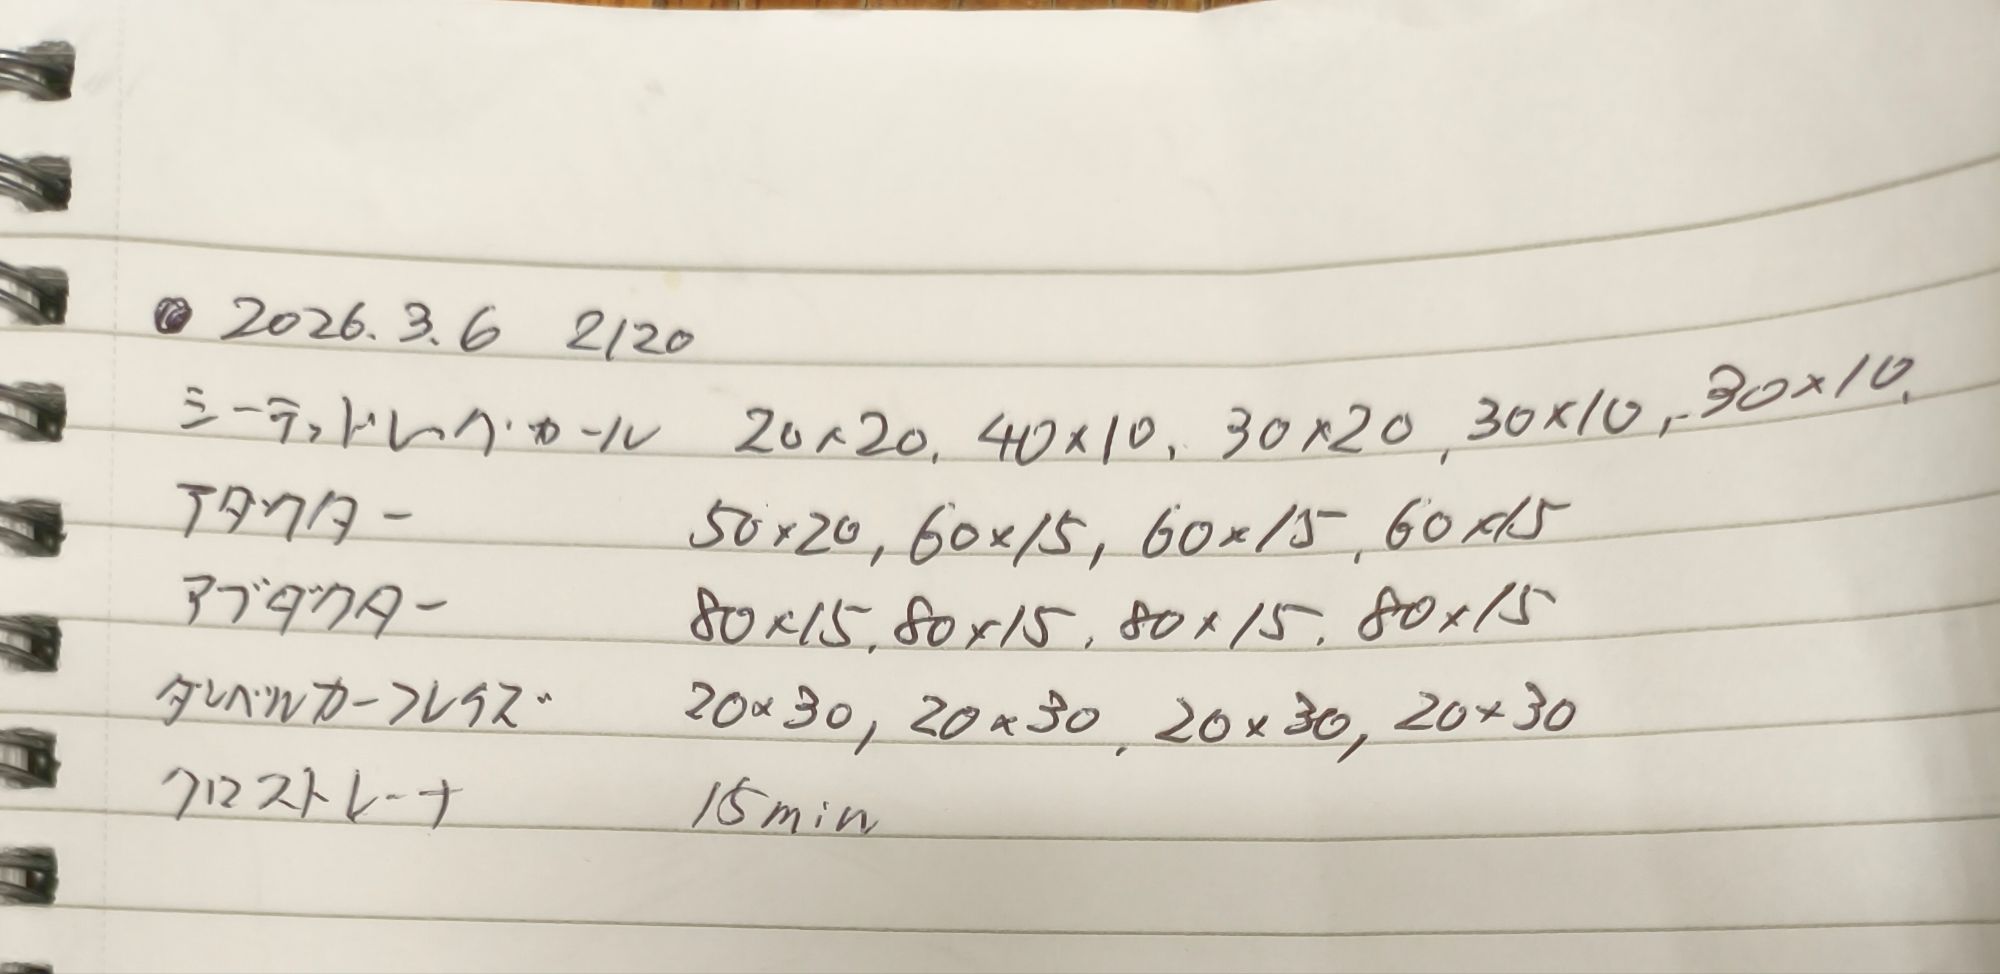 2026.3.6 2120
シーテッドレッグ・カール 20×20, 40×10, 30×20, 30×10, 30×10,
アダクター 50×20, 60×15, 60×15, 60×15
アブダクター 80×15, 80×15, 80×15, 80×15
ダンベルカーフレイズ 20×30, 20×30, 20×30, 20×30
クロストレーナ 15min